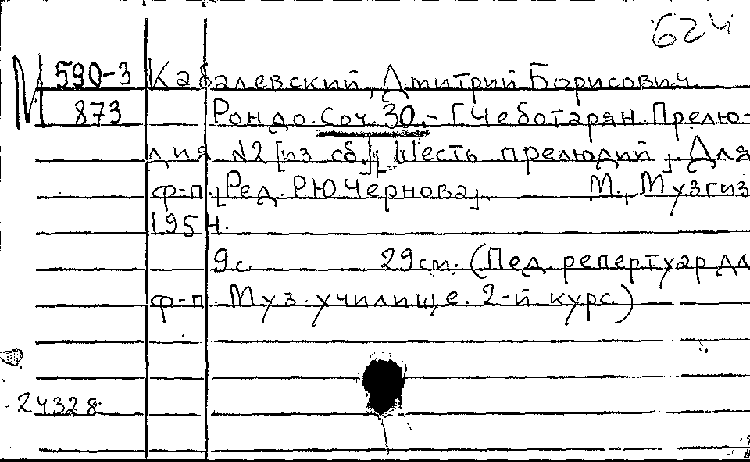 624
М 590-3 Кабалевский, Дмитрий Борисович
873 Рондо. Соч. 30. - Г. Чеботарян. Прелю-
дия №2 [из сб.] "Шесть прелюдий". Для
ф-п. [Ред. Р.Ю. Чернова]. М., Музгиз
1954.
9 с. 29 см. (Пед. репертуар дл
ф-п Муз. училище. 2-й курс.)
24328